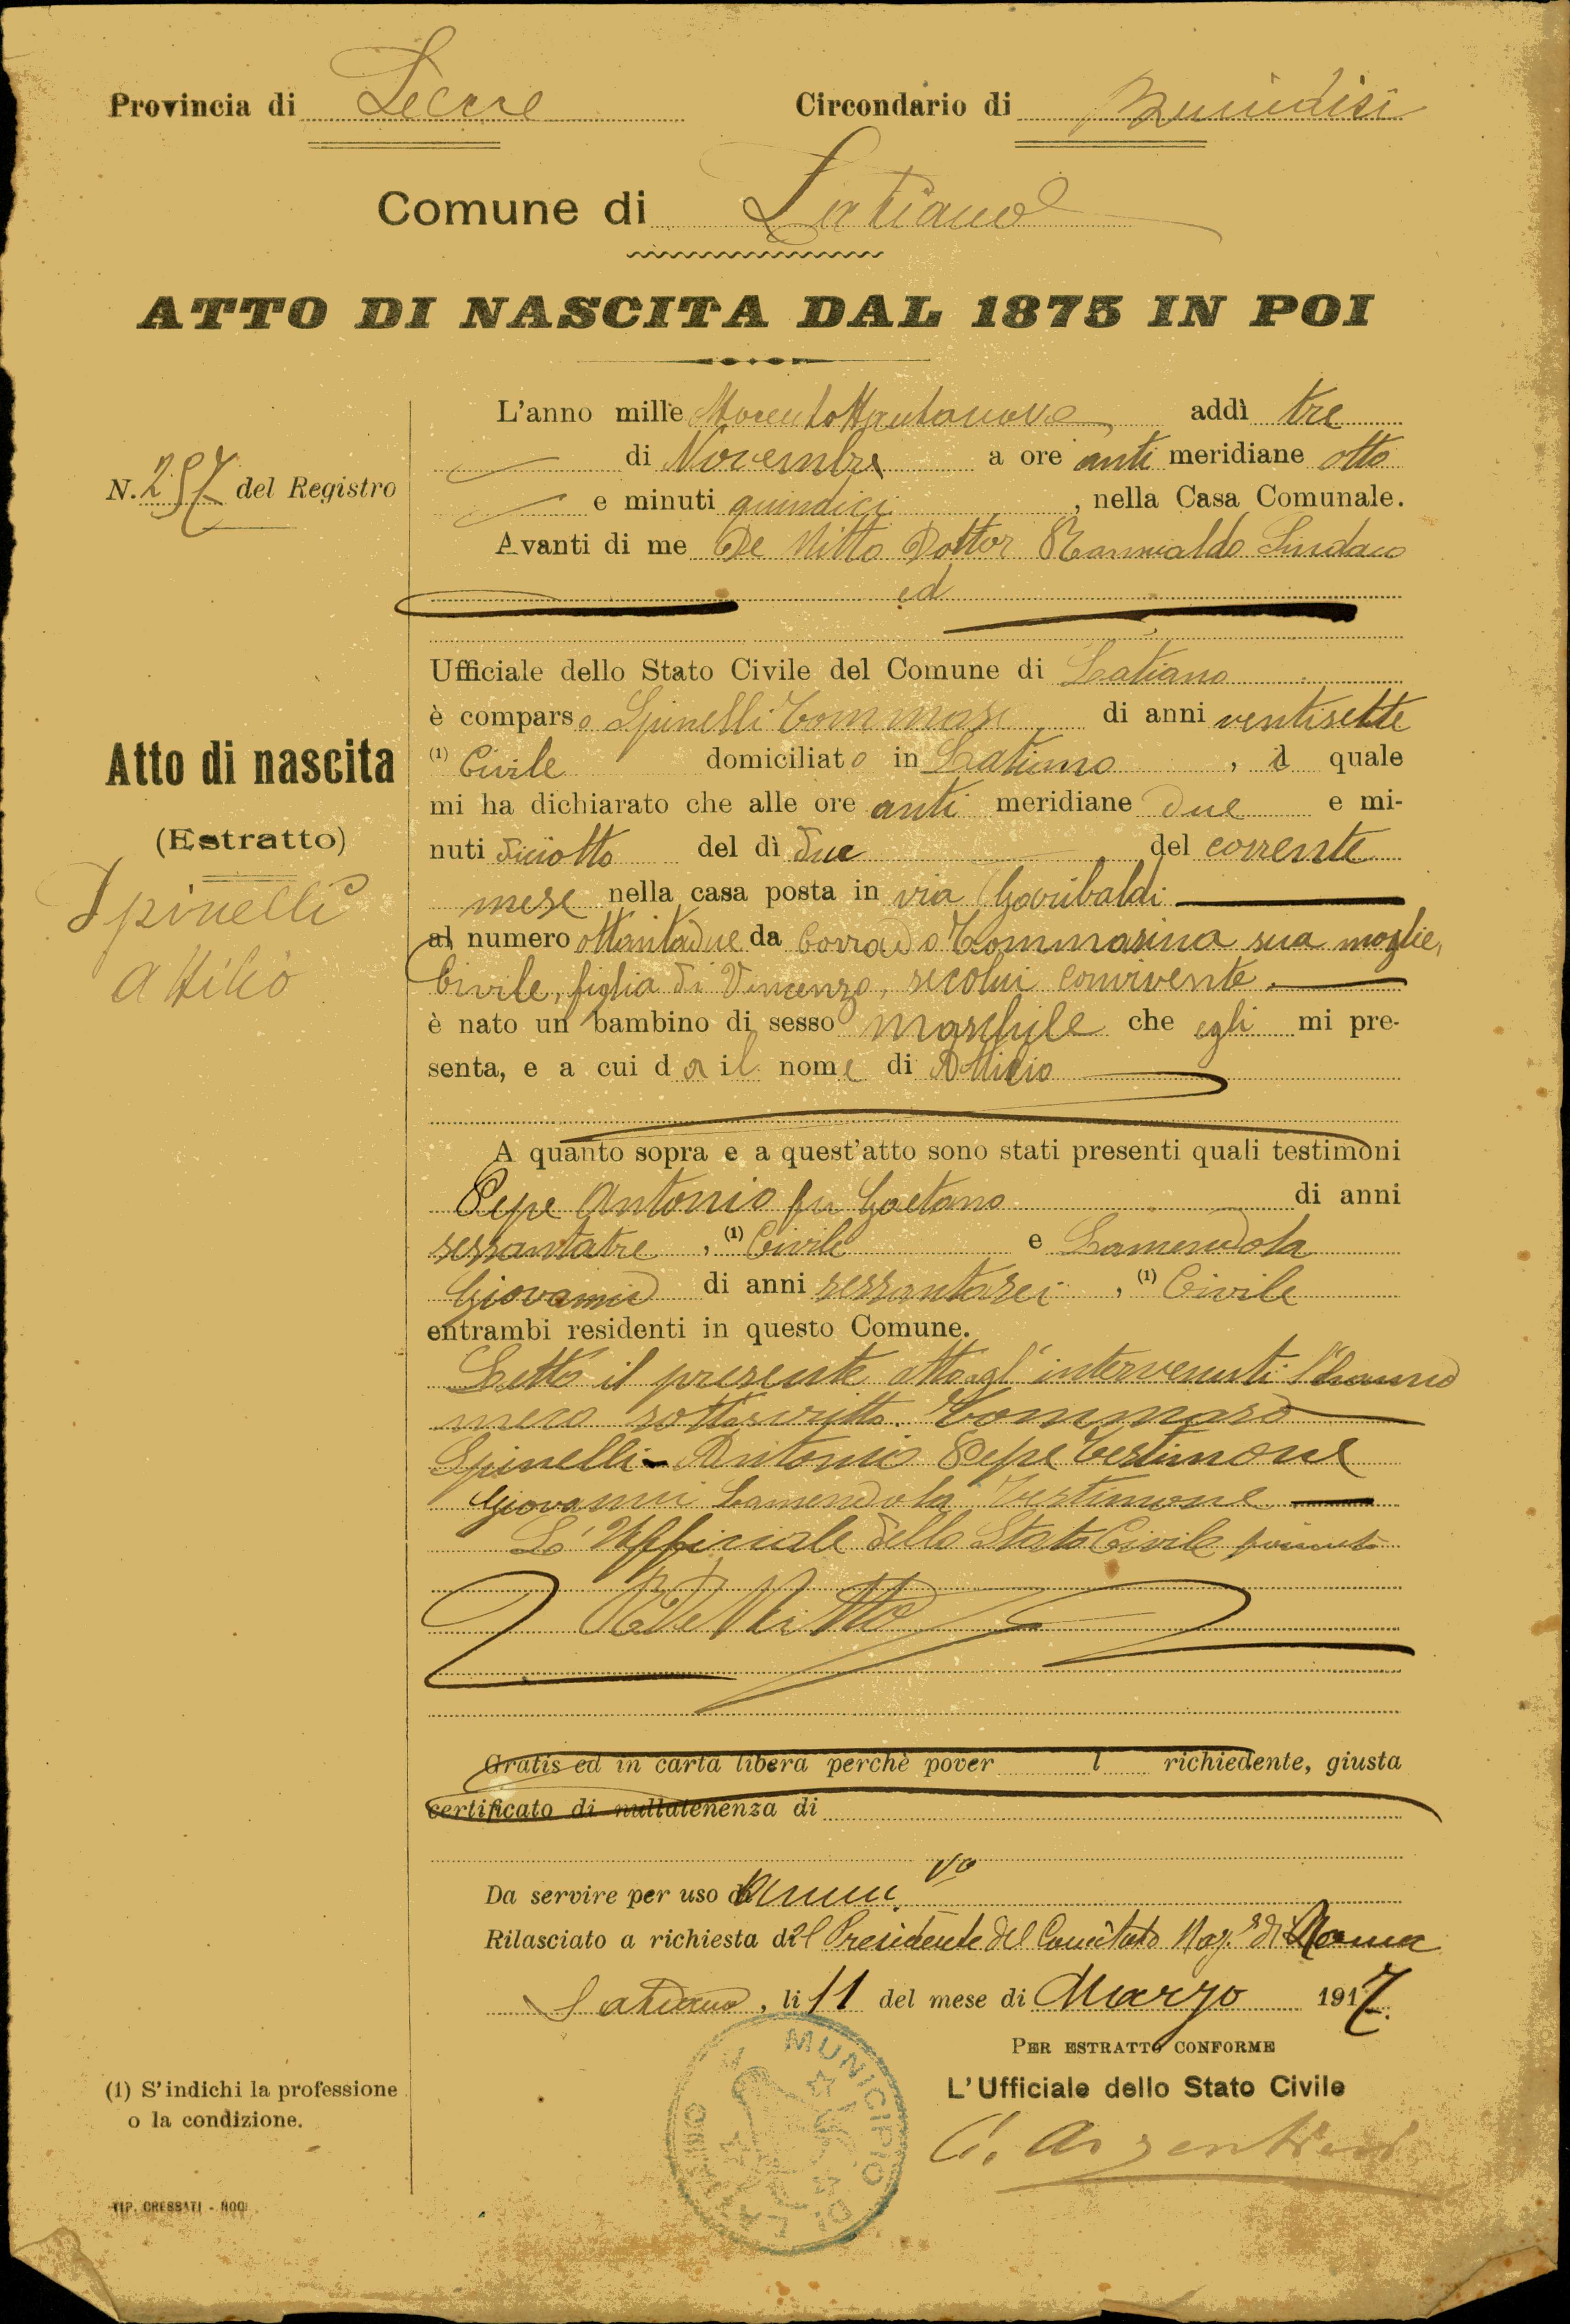 Provincia di Lecce Circondario di Brindisi
Comune di Latiano
ATTO DI NASCITA DAL 1875 IN POI
L'anno mille addì tre
di Novembre a ore anti meridiane otto
N. 257 del Registro
e minuti quindici, nella Casa Comunale.
Avanti di me De Nitto Dottor Sindaco
ed
Ufficiale dello Stato Civile del Comune di Latiano
è comparso Spinelli Tommaso di anni ventisette
Atto di nascita
(1) Civile domiciliato in Latiano, il quale
mi ha dichiarato che alle ore anti meridiane due e mi-
(Estratto)
nuti diciotto del dì due del corrente
Spinelli
mese nella casa posta in via Garibaldi
al numero ottantadue da Corrado Tommasina sua moglie,
Attilio
Civile, figlia di Vincenzo, secolui convivente.
è nato un bambino di sesso maschile che egli mi pre-
senta, e a cui da il nome di Attilio
A quanto sopra e a quest'atto sono stati presenti quali testimoni
Pepe Antonio fu Gaetano di anni
sessantatre, (1) Civile e Lamendola
Giovanni di anni sessantasei, (1) Civile
entrambi residenti in questo Comune.
Letto il presente atto agl'intervenuti l'hanno
meco sottoscritto. Tommaso
Spinelli - Antonio Pepe testimone
Giovanni Lamendola testimone
L'Uffiziale dello Stato Civile
De Nitto
Gratis ed in carta libera perchè pover l richiedente, giusta
certificato di nullatenenza di
Da servire per uso Ammi.vo
Rilasciato a richiesta del Presidente del Comitato Naz. di Roma
Latiano, li 11 del mese di Marzo 1917.
PER ESTRATTO CONFORME
L'Ufficiale dello Stato Civile
(1) S'indichi la professione
o la condizione.
C. Argentieri
MUNICIPIO DI LATIANO
TIP. CRESSATI - NOCI